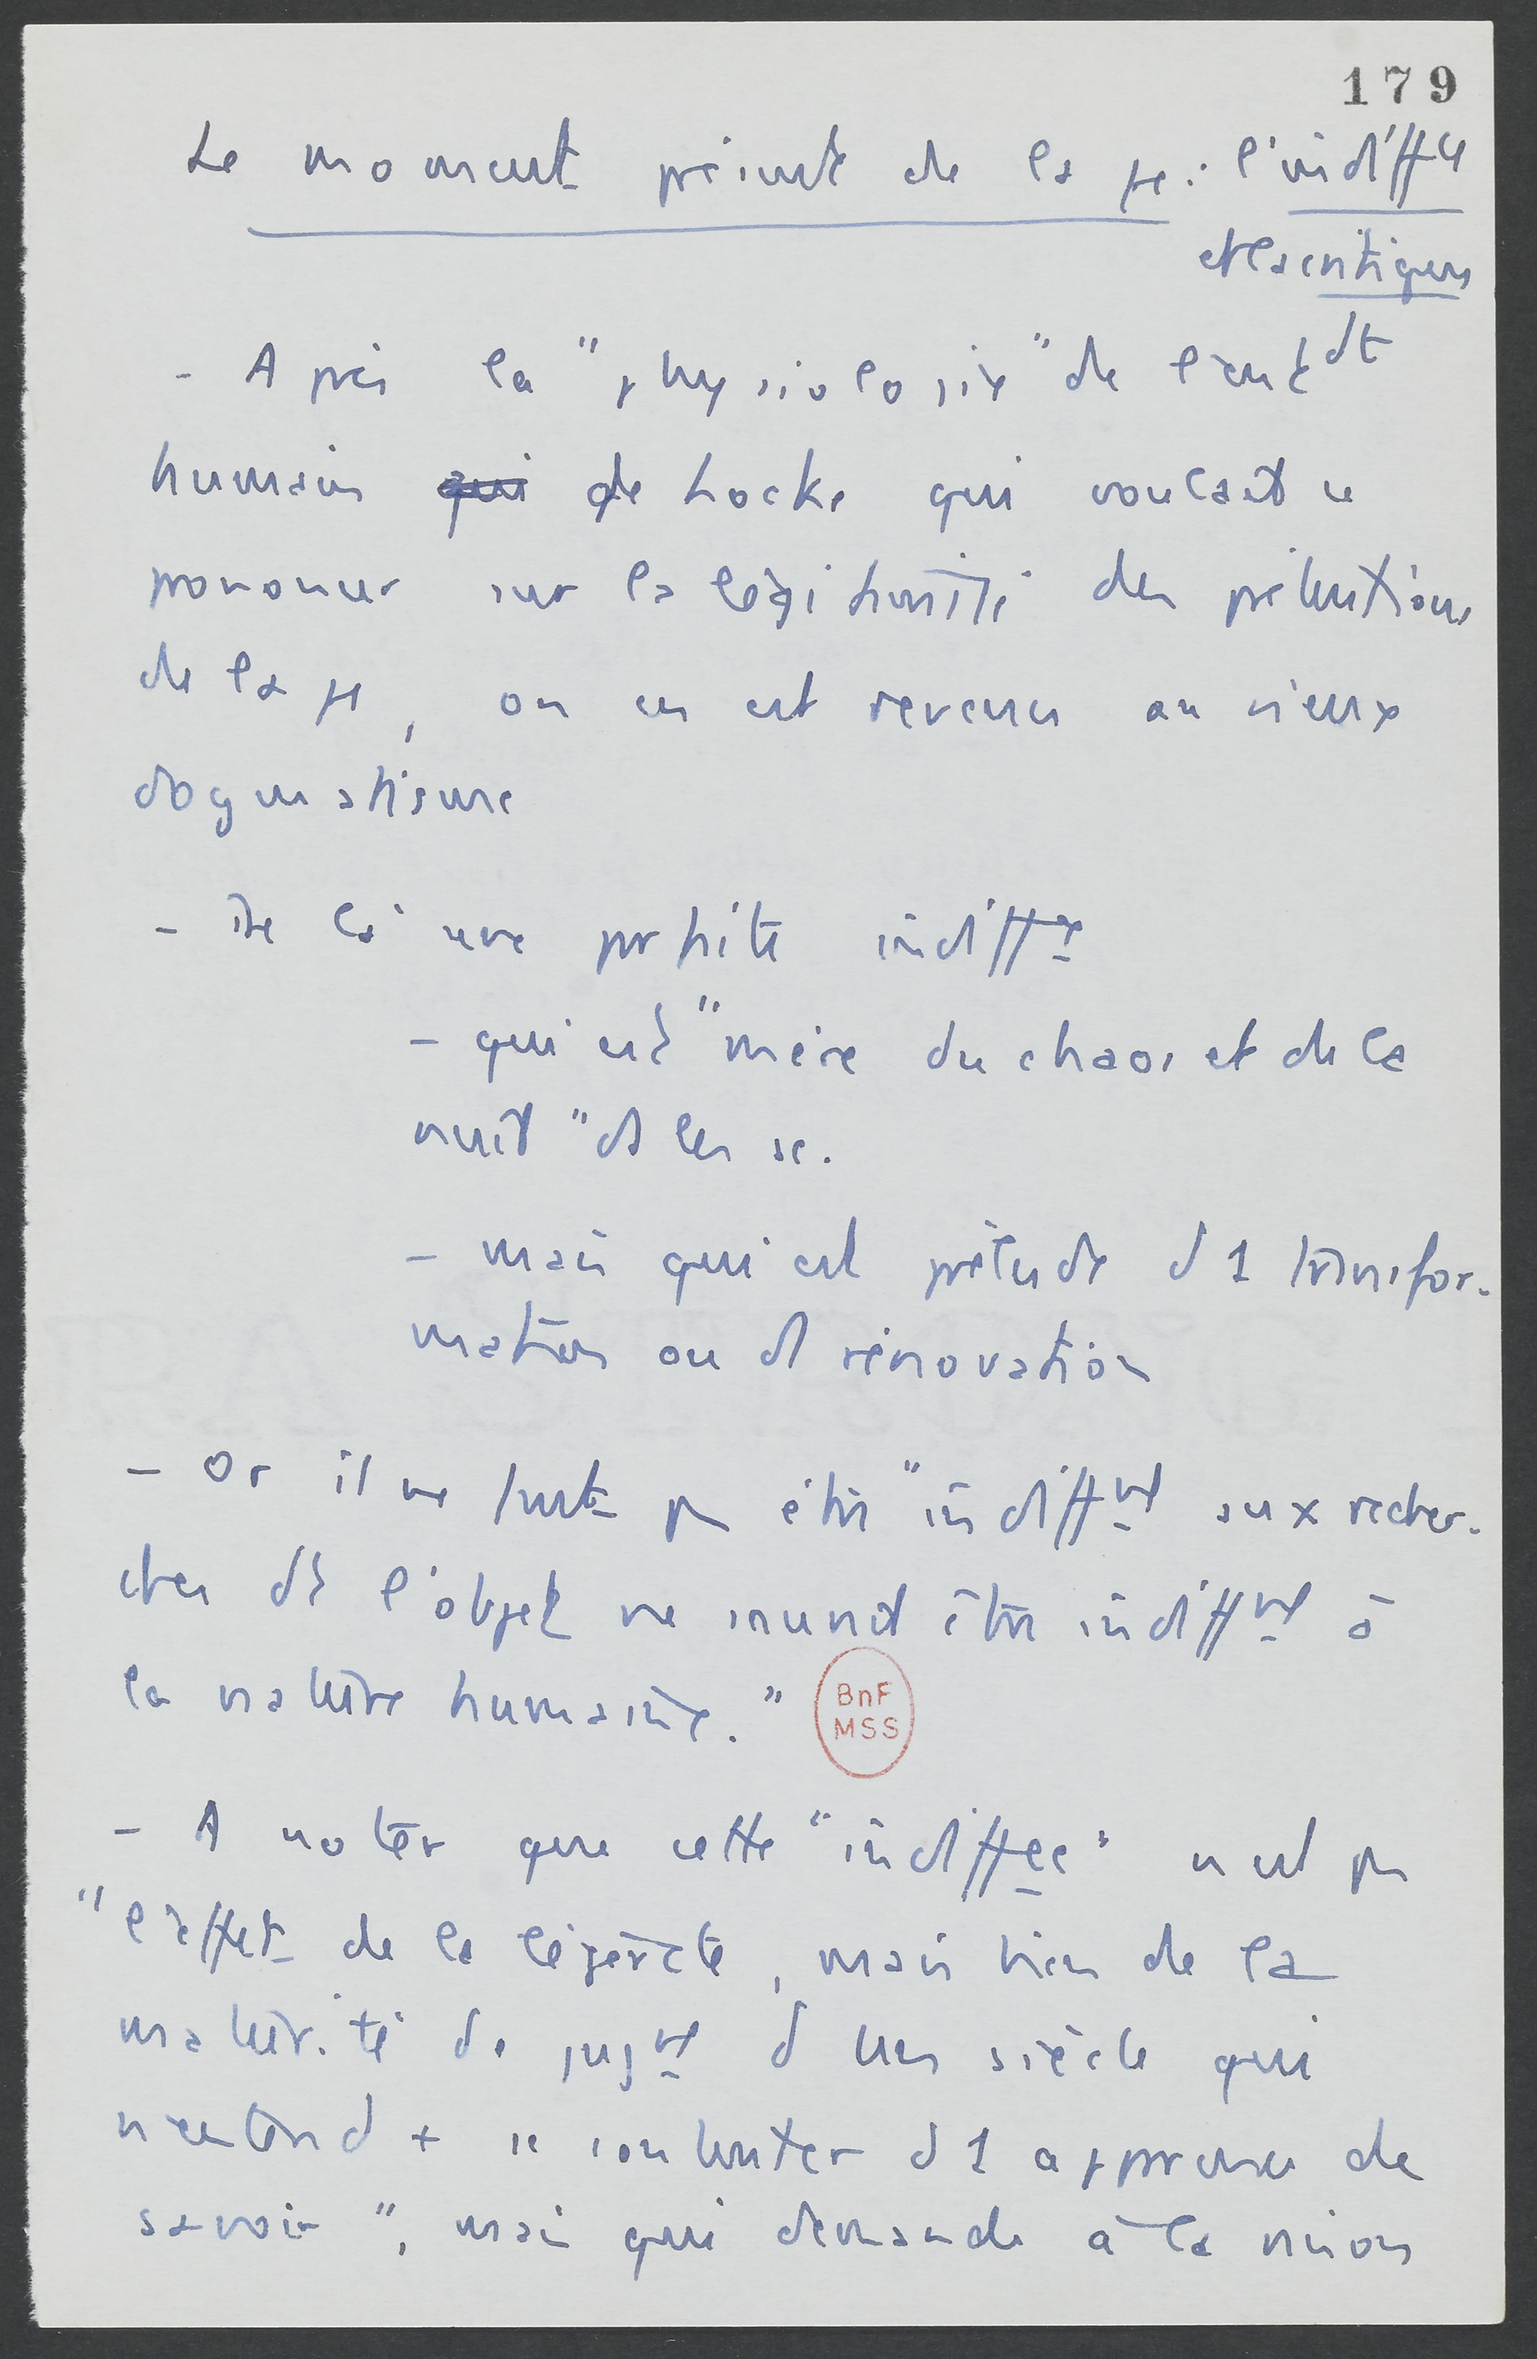 179
Le moment présent de la φe : l'indiffce
et la critique
- Après la "physiologie" de l'entdt
humain qui de Locke qui voulait se
prononcer sur la légitimité des prétentions
de la φe, on en est revenu au vieux
dogmatisme
- De là une parfaite indiffce
- qui est "mère du chaos et de la
nuit" ds les sc.
- mais qui est prélude d 1 transfor-
mation ou d rénovation
- Or il ne sert pas être "indiffnt aux recher-
ches dt l'objet ne saurait être indiffnt à
la nature humaine."
BnF
MSS
- A noter que cette "indiffce" n est pas
"l'effet de la légèreté, mais bien de la
maturité de jugnt d un siècle qui
n'entend + se contenter d 1 apparence de
savoir", mais qui demande à la raison